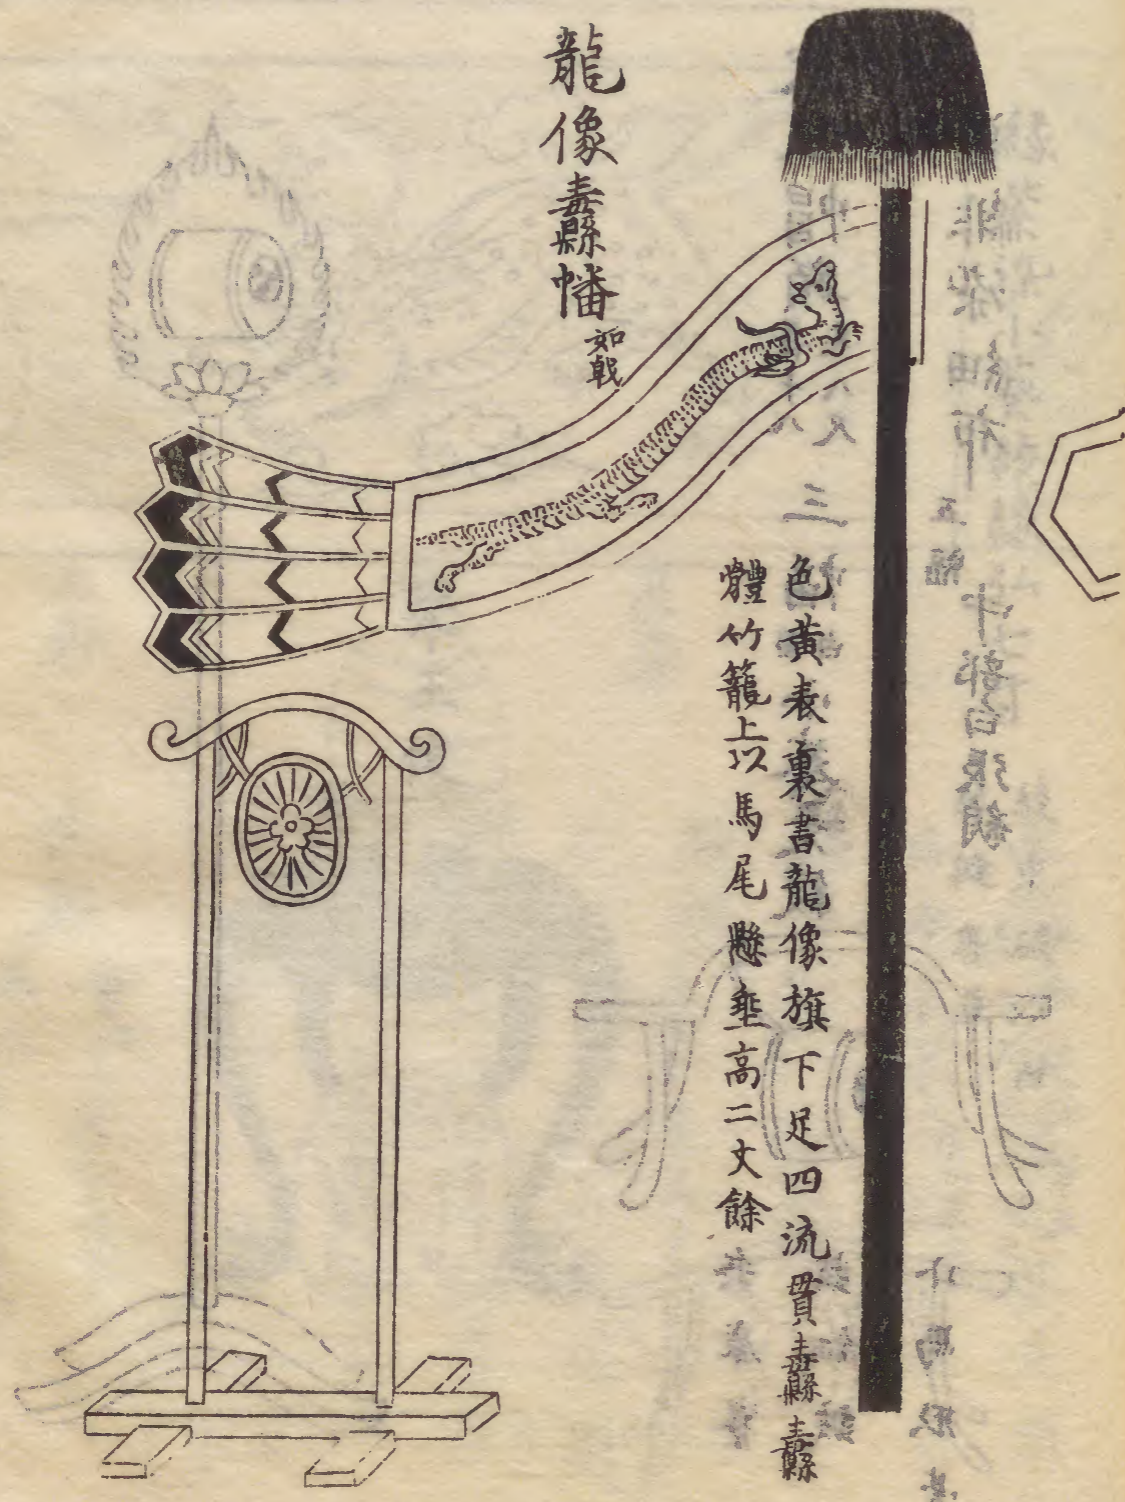 龍像纛幡
如戟
色黃表裏書龍像旗下足四流貫纛纛
體竹籠上以馬尾懸垂高二丈餘